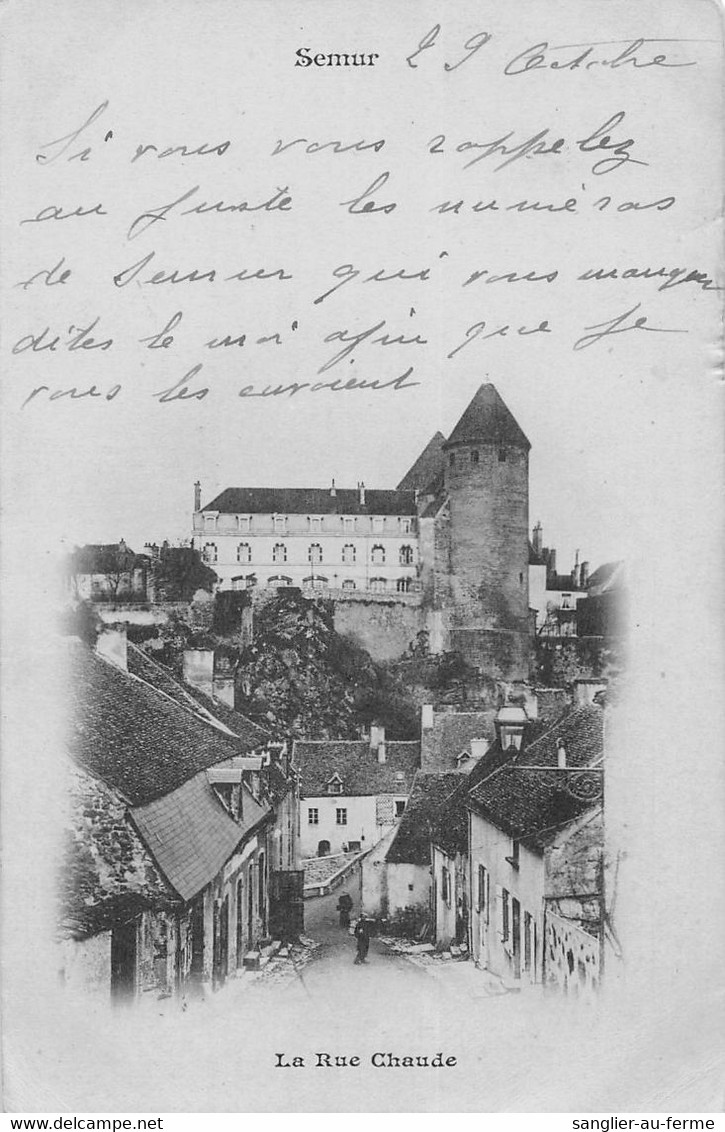 Semur 29 Octobre
Si vous vous rappelez
au juste les numéros
de Semur qui vous manquent
dites le moi afin que je
vous les envoient
La Rue Chaude
sanglier-au-ferme